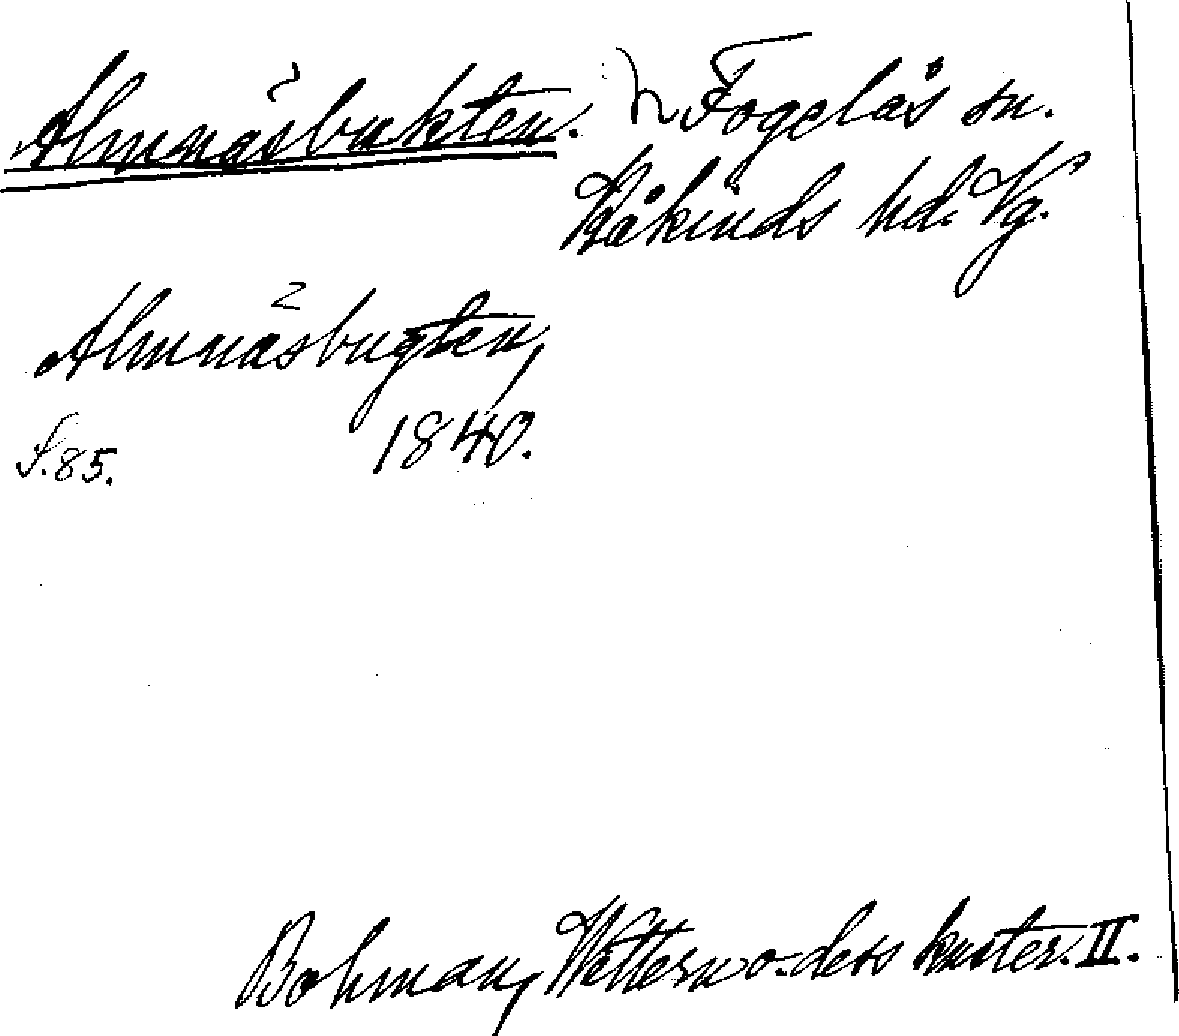 Almnäsbukten. Fogelås sn.
Kåkinds hd. Vg.
Almnäsbugten,
S. 85. 1840.
Bohman, Wettern o. dess kuster. II.